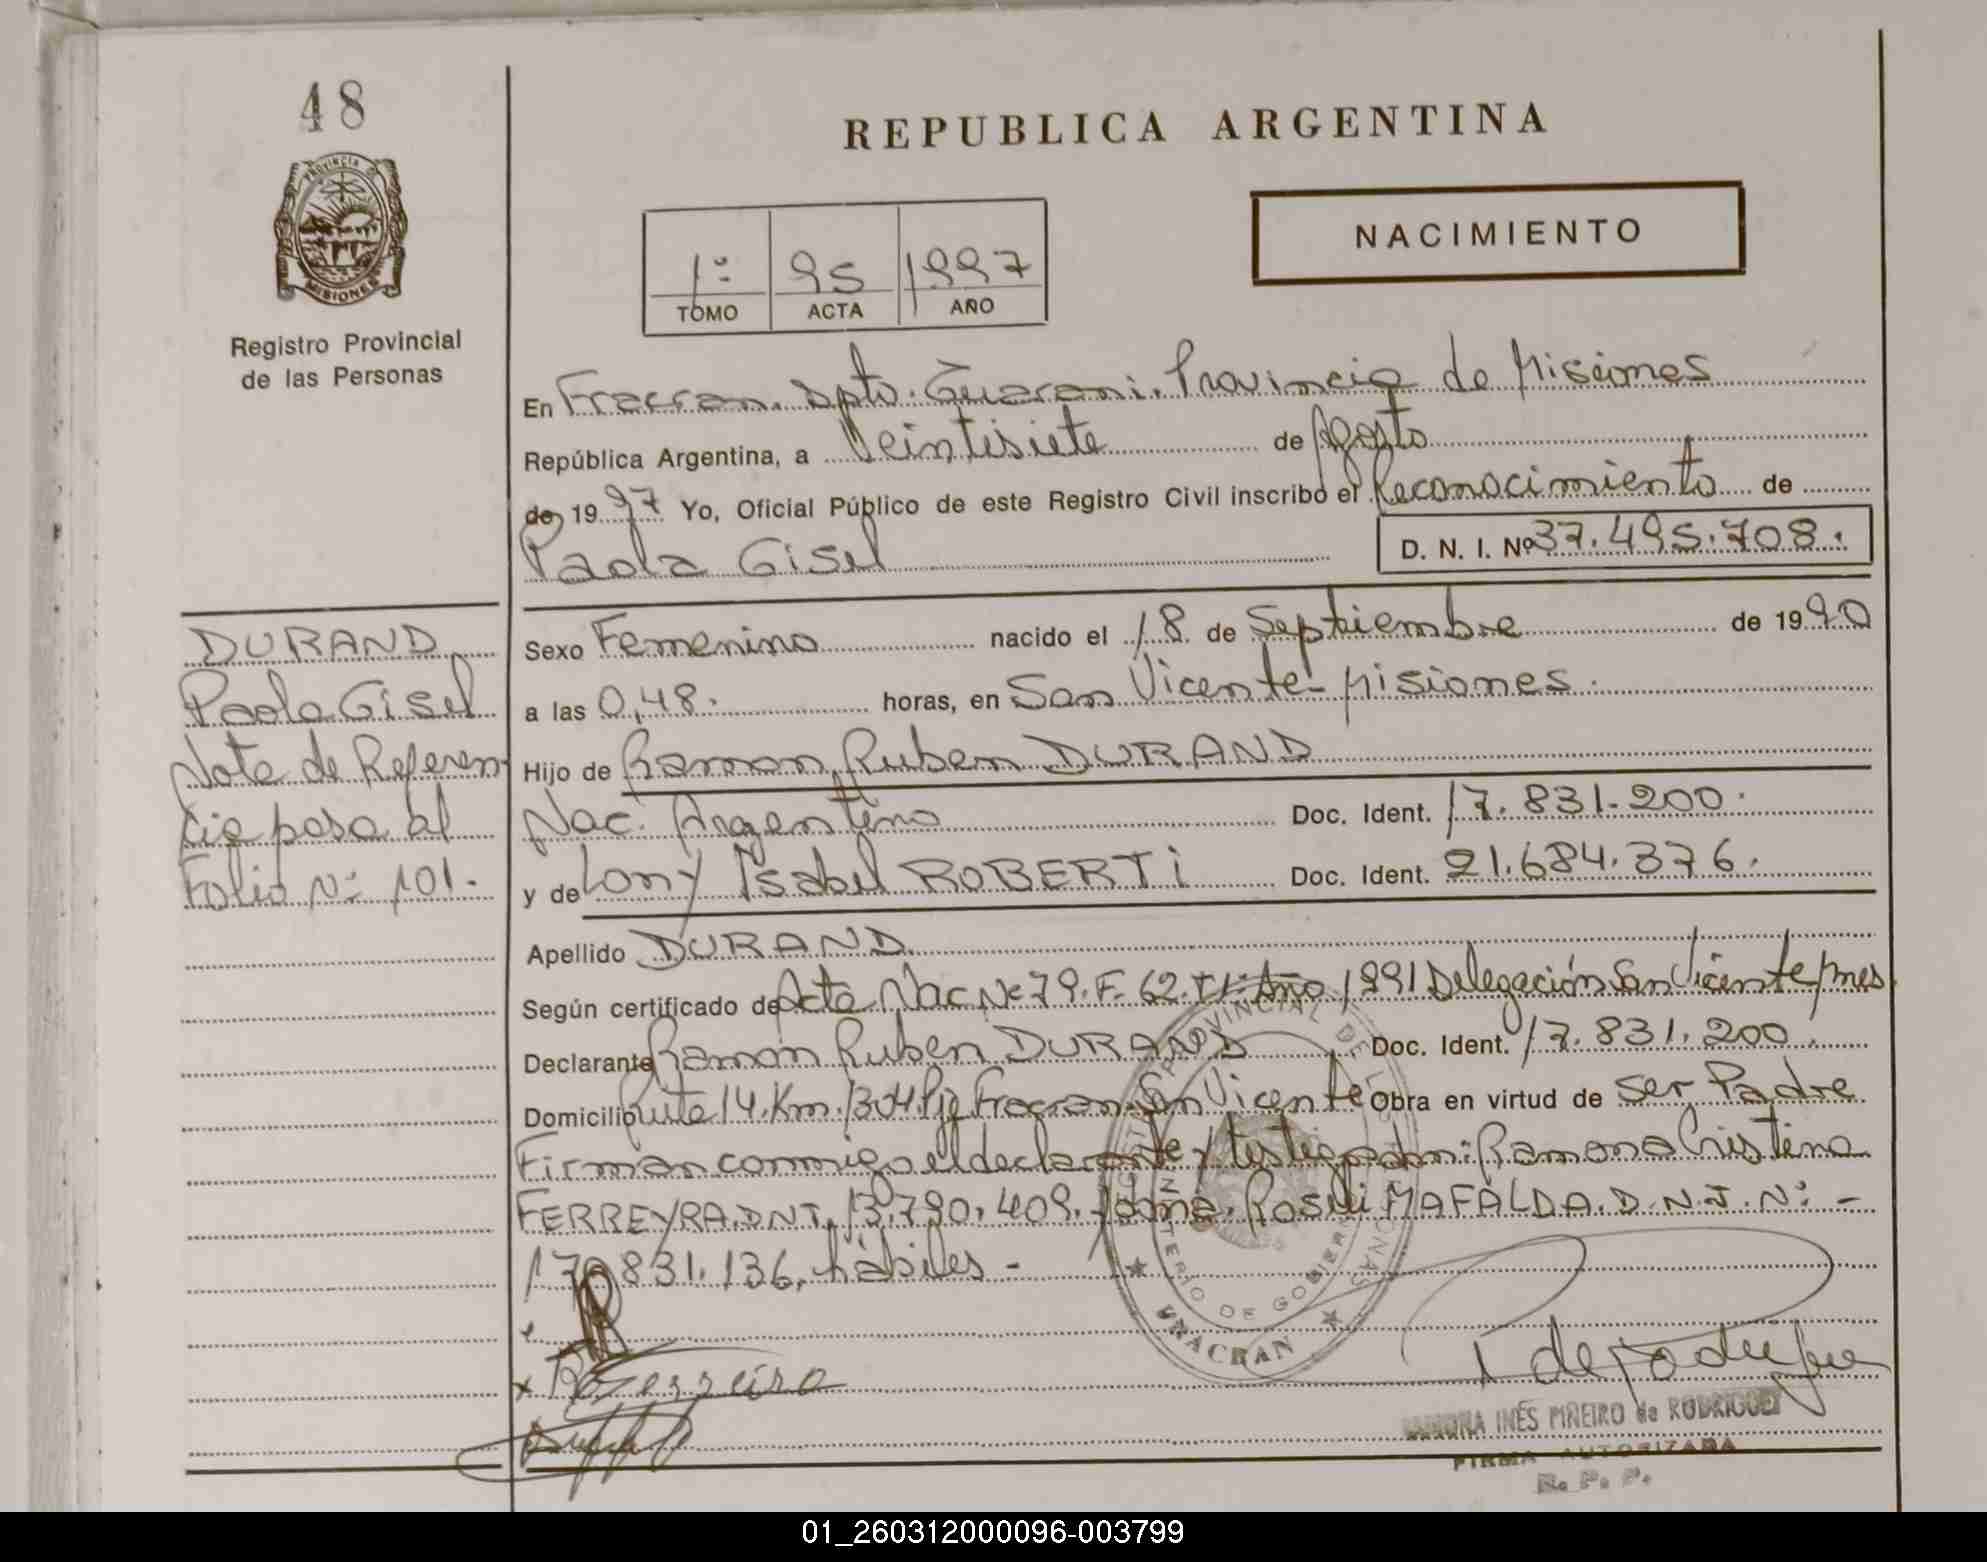 48
PROVINCIA D
MISIONES
Registro Provincial
de las Personas
REPUBLICA ARGENTINA
NACIMIENTO
1º 95 1997
TOMO ACTA AÑO
En Fracran. Dpto. Guarani. Provincia de Misiones
República Argentina, a Veintisiete de Agosto
de 1997 Yo, Oficial Público de este Registro Civil inscribo el Reconocimiento de
Paola Gisel D. N. I. Nº 37.495.708.
DURAND
Paola Gisel
Nota de Referen
cia pasa al
Folio Nº 101.
Sexo Femenino nacido el 18 de Septiembre de 1990
a las 0,48. horas, en San Vicente - Misiones.
Hijo de Ramon Ruben DURAND
Nac. Argentino Doc. Ident. 17.831.200.
y de Lony Isabel ROBERTi Doc. Ident. 21.684.376.
Apellido DURAND
Según certificado de Acta Nac Nº 79. F. 62. Tº 1º Año 1991 Delegación San Vicente Mnes.
Declarante Ramón Ruben DURAND Doc. Ident. 17.831.200.
Domicilio Ruta 14. Km. 1304 Pje Fracran. San Vicente Obra en virtud de Ser Padre
Firman conmigo el declarante y testigos Ramona Cristina
FERREYRA. DNI. 13.790.409. Roseli MAFALDA. D.N.I. Nº -
17.831.136. hábiles -
PROVINCIAL DE
MINISTERIO DE GOBIERNO
FRACRAN
RAMONA INÉS PIÑEIRO de RODRIGUEZ
FIRMA AUTORIZADA
R. P. P.
01_260312000096-003799